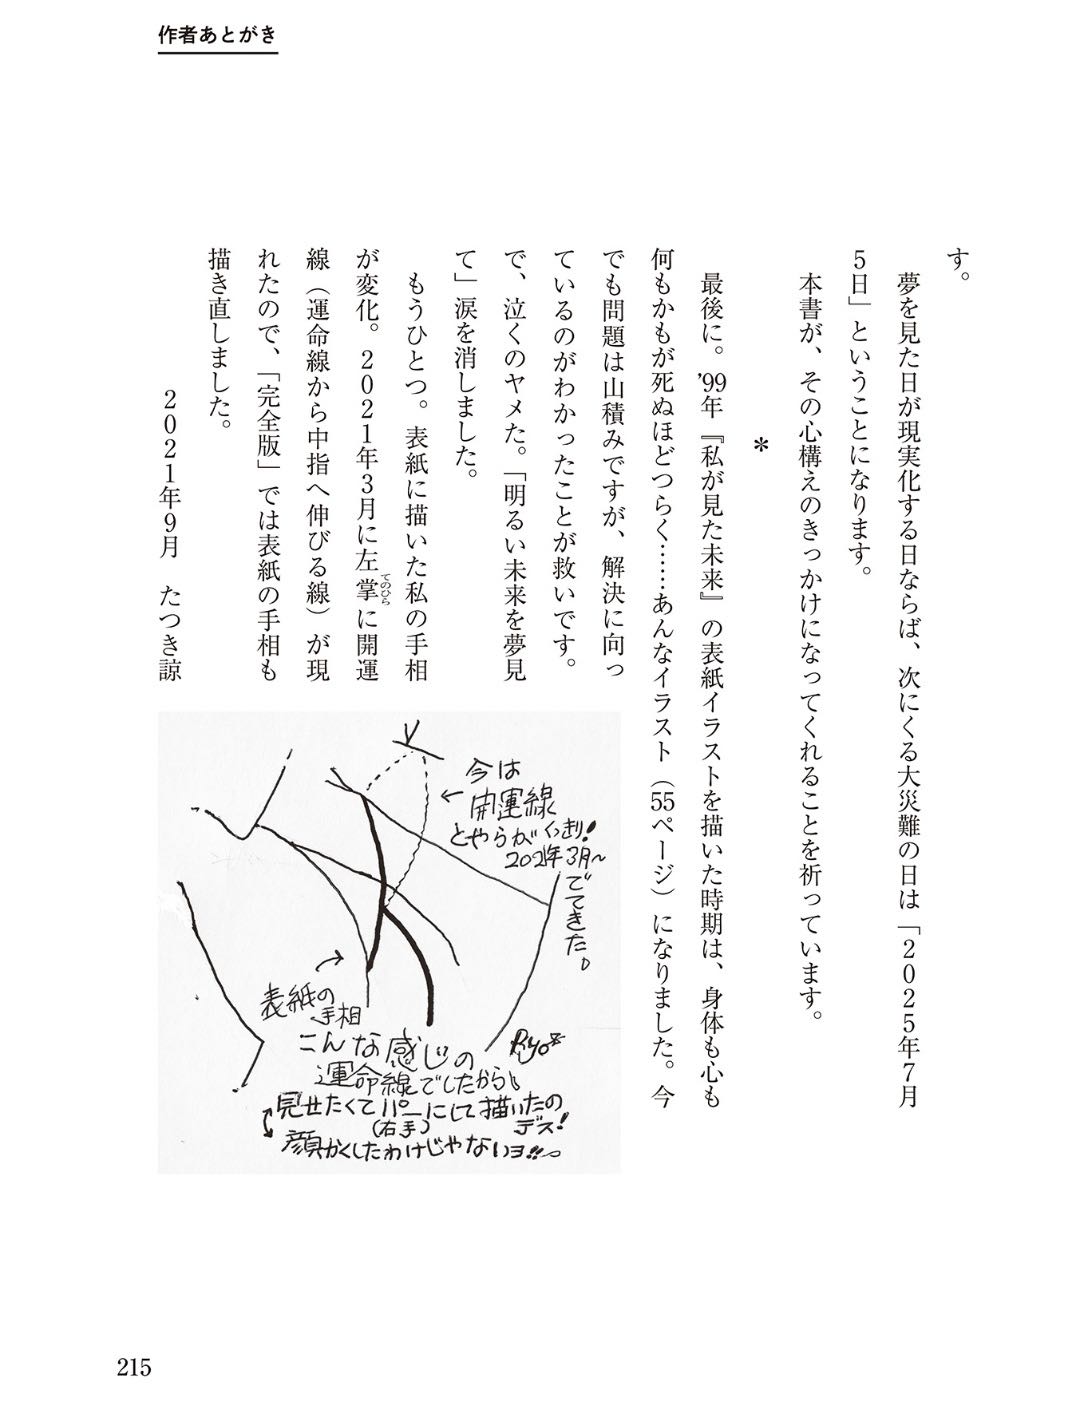 作者あとがき
す。
夢を見た日が現実化する日ならば、次にくる大災難の日は「2025年7月
5日」ということになります。
本書が、その心構えのきっかけになってくれることを祈っています。
*
最後に。'99年『私が見た未来』の表紙イラストを描いた時期は、身体も心も
何もかもが死ぬほどつらく……あんなイラスト（55ページ）になりました。今
でも問題は山積みですが、解決に向っ
ているのがわかったことが救いです。
で、泣くのヤメた。「明るい未来を夢見
て」涙を消しました。
もうひとつ。表紙に描いた私の手相
が変化。2021年3月に左掌に開運
てのひら
線（運命線から中指へ伸びる線）が現
れたので、「完全版」では表紙の手相も
描き直しました。
2021年9月　たつき諒
今は
開運線
とやらがくっきり!
2021年3月〜
でてきた。
表紙の
手相
こんな感じの
運命線でしたから
見せたくてパーにして描いたの
(右手)
デス!
顔かくしたわけじゃないヨ!!
Ryo
215